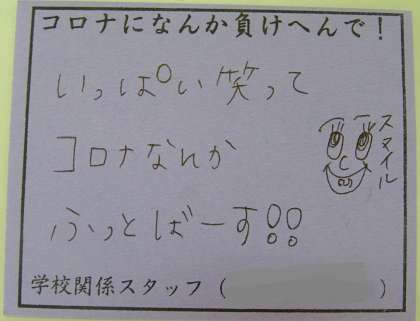 コロナになんか負けへんで！
いっぱい笑って
コロナなんか
ふっとばーす!!
スマイル
学校関係スタッフ（　　　　）